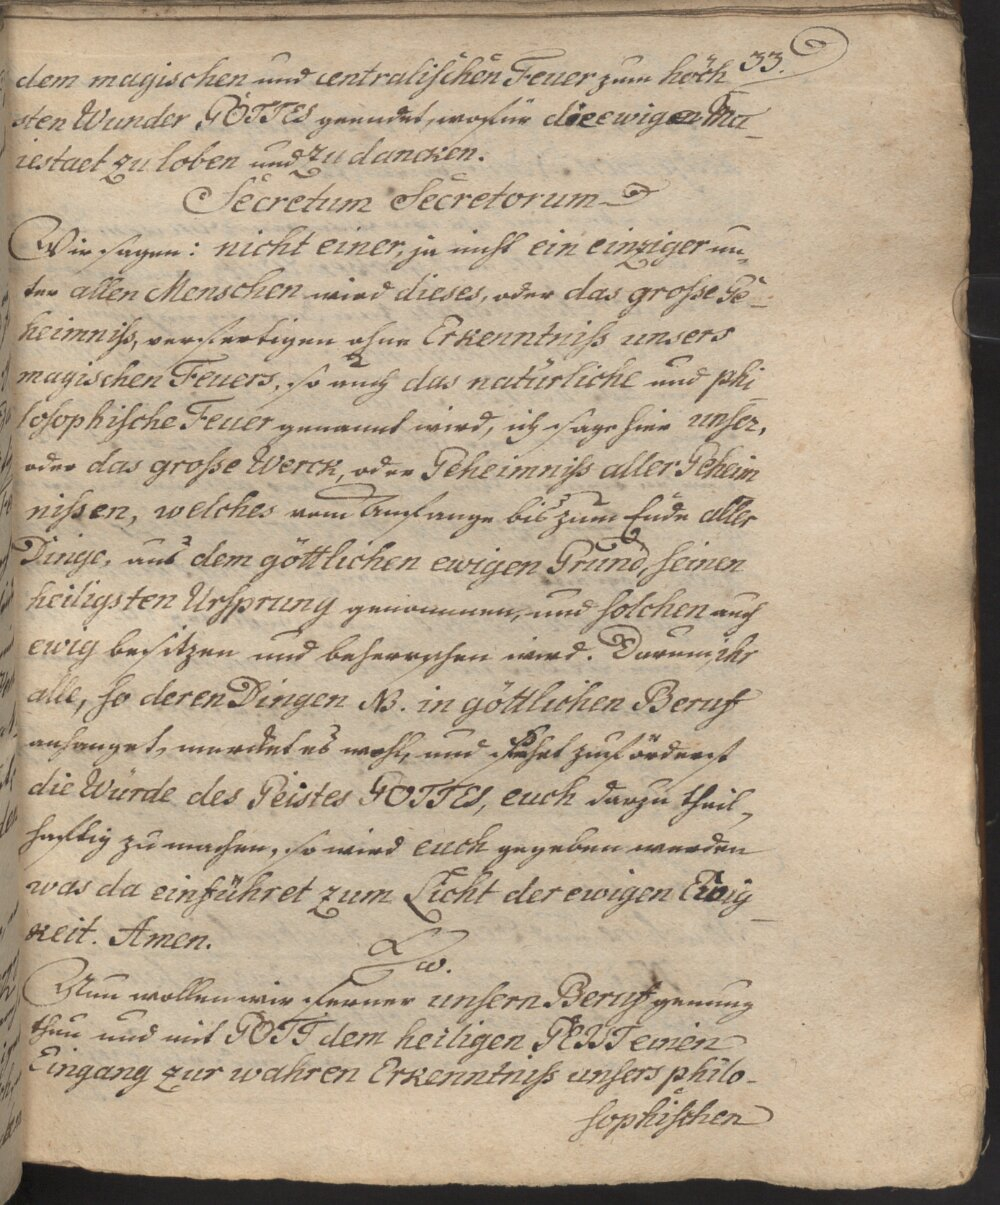 33.
dem magischen und centralischen Feuer zum höch
sten Wunder GOTTES geendet, wofür die ewigen Ma-
iestaet zu loben und zu dancken.
Secretum Secretorum
Wir sagen: nicht einer, ja nicht ein einziger un-
ter allen Menschen wird dieses, oder das große Ge-
heimniß, verfertigen ohne Erkenntniß unsers
magischen Feuers, so auch das natürliche und phi
losophische Feuer genannt wird, ich sage hier unser,
oder das große Werck, oder Geheimniß aller Geheim
nißen, welches vom Anfange bis zum Ende aller
Dinge, aus dem göttlichen ewigen Grund, seinen
heiligsten Ursprung genommen, und solchen auch
ewig besitzen und beherrschen wird. Darum, ihr
alle, so deren Dingen NB. in göttlichen Beruf
anhanget, merdet es wohl, und suchet zuförderst
die Würde des Geistes GOTTES, euch darzu theil-
hafftig zu machen, so wird euch gegeben werden
was da einführet zum Licht der ewigen Ewig-
keit. Amen.
Nun wollen wir ferner unsern Beruf genung
thun und mit GOTT dem heiligen GEIST einen
Eingang zur wahren Erkenntniß unsers philo-
sophischen